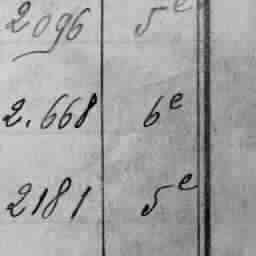 2096 5e
2.668 6e
2181 5e